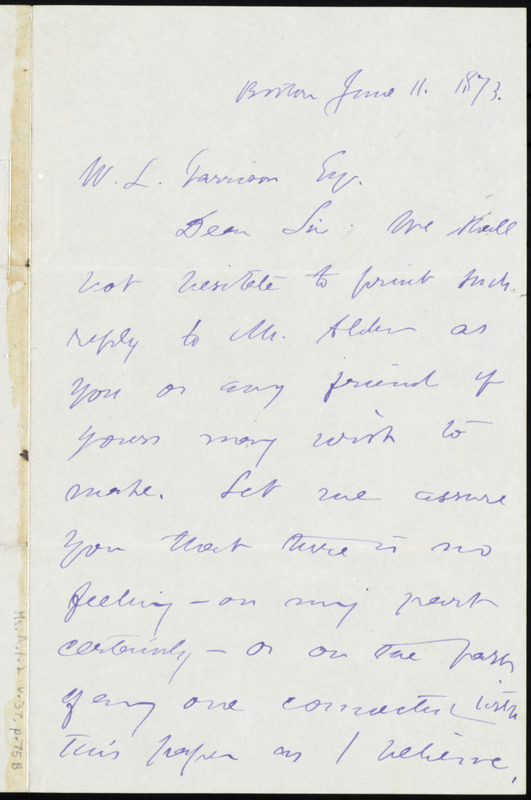 Boston June 11. 1873.
W. L. Garrison Esq.
Dear Sir; We shall
not hesitate to print such
reply to Mr. Alden as
you or any friend of
yours may wish to
make. Let me assure
you that there is no
feeling – on my part
certainly – or on the part
of any one connected with
this paper as I believe,
Ms. A. 1. 2. v. 37, p. 75 B